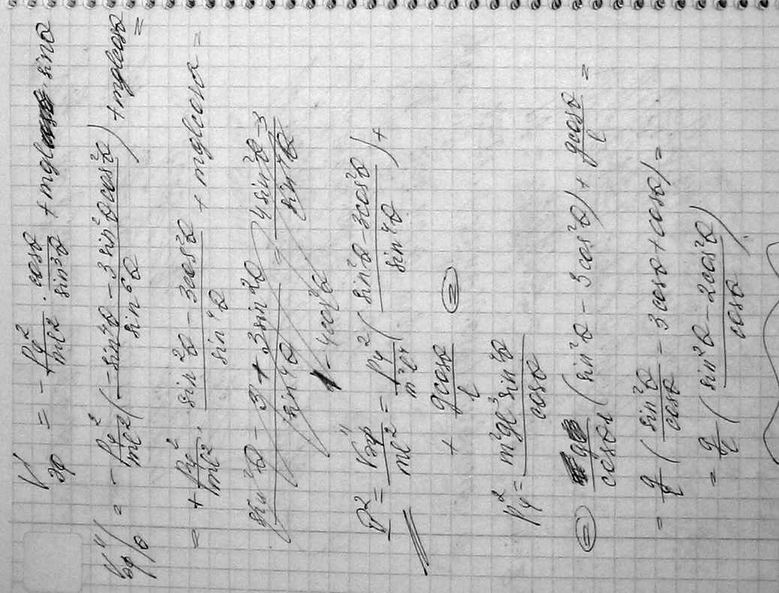 V'эф = - Pφ²/ml² · cosθ/sin³θ + mgl sinθ
V''эф/θ = - Pφ²/ml² ( -sin⁴θ - 3 sin²θ cos²θ / sin⁶θ ) + mgl cosθ =
= + Pφ²/ml² · sin²θ - 3cos²θ / sin⁴θ + mgl cosθ =
sin²θ - 3 + 3 sin²θ / sin⁴θ = 4 sin²θ - 3 / sin⁴θ
1 - 4cos²θ
Ω² = V''эф / ml² = Pφ²/m²l⁴ ( sin²θ - 3cos²θ / sin⁴θ ) +
+ g cosθ / l ⊜
Pφ² = m²gl³ sin⁴θ / cosθ
⊜ g / cosθ l ( sin²θ - 3 cos²θ ) + g cosθ / l =
= g/l ( sin²θ / cosθ - 3 cosθ + cosθ ) =
= g/l ( sin²θ - 2cos²θ / cosθ )